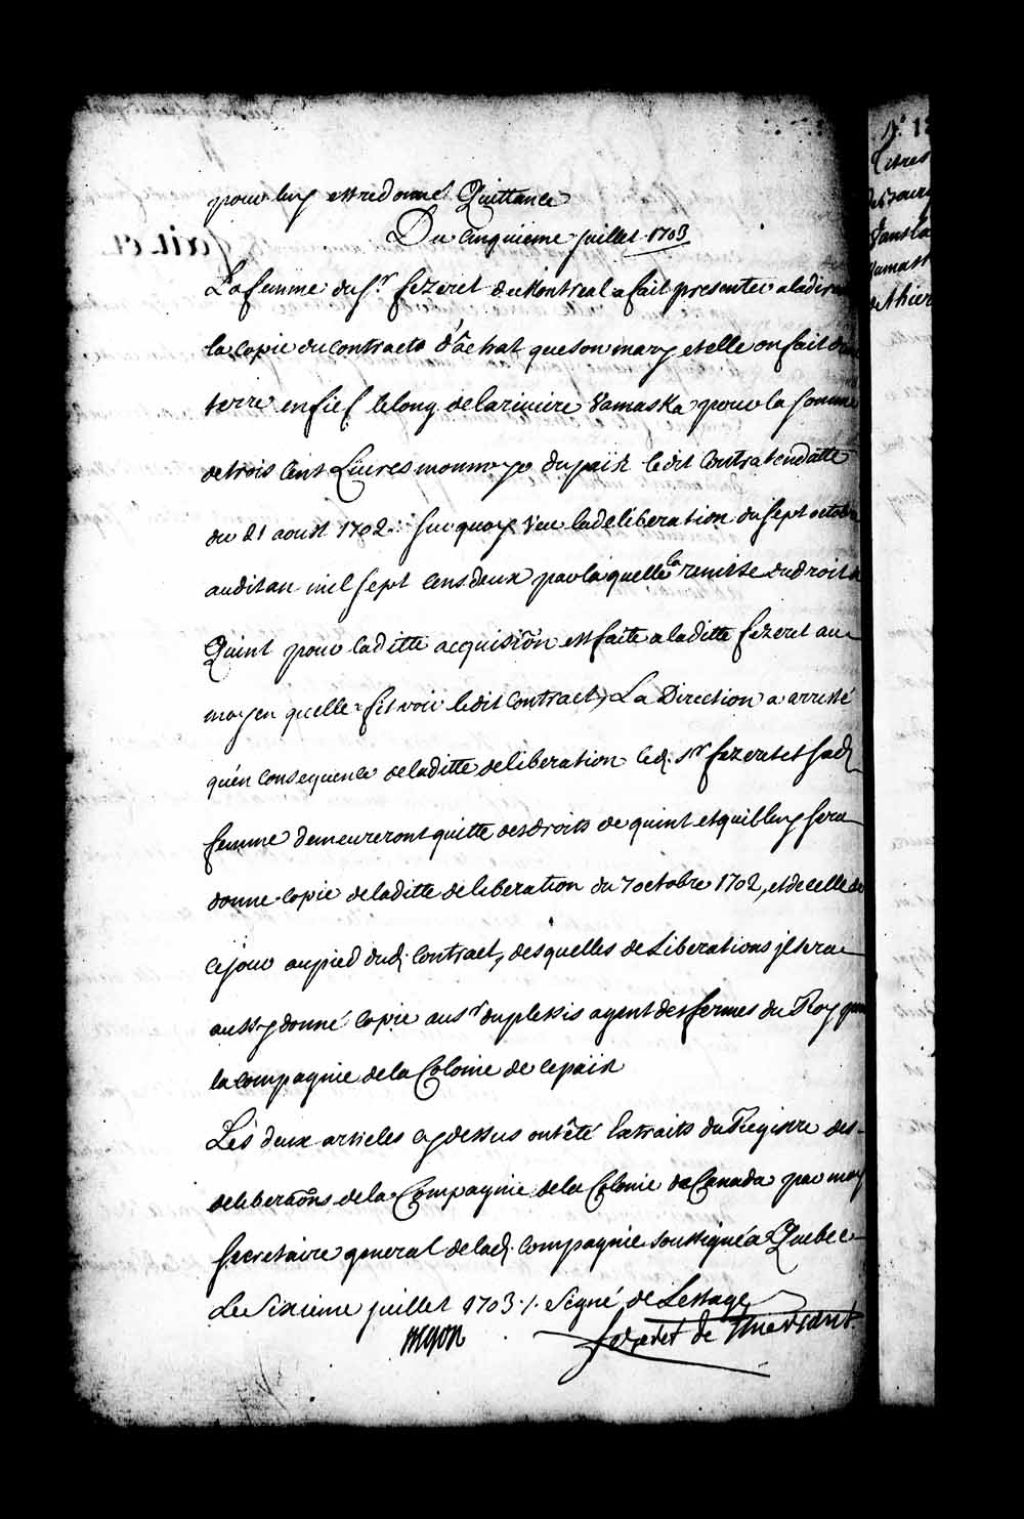 pour luy estre donné Quittance
Du cinquieme juillet 1703
La femme du Sr fezeret de Montreal a fait presenter a la
la copie du contracto d'achat que son mary et elle on fait
terre en fief le long de la riviere Yamaska pour la somme
de trois cent Livres monnoye du païs ledit Contrat en datte
du 21 aoust 1702. sur quoy veu la deliberation du sept octobre
audit an mil sept cens deux par laquelle la remise du droit de
Quint pour laditte acquisiõn est faite a laditte fezeret au
moyen quelle fit voir ledit Contract, La Direction a arresté
qu'en consequence de laditte deliberation led. Sr fezeret et sad.
femme demeureront quitte des droits de quint et quil luy sera
donne copie de laditte deliberation du 7 octobre 1702, et de celle de
ce jour au pied dud. contract, desquelles deliberations jl sera
aussy donné copie au sr duplessis agent des fermes du Roy
la compagnie de la Colonie de ce païs
Les deux articles cy dessus ont êté Extraits du Registre des
deliberaõns de la Compagnie de la Colonie de Canada par moy
secretaire general de lad. compagnie soussigné a Quebec
Le Sixieme juillet 1703 ./. Signé de Lessage
Begon
N.° 1
Titres